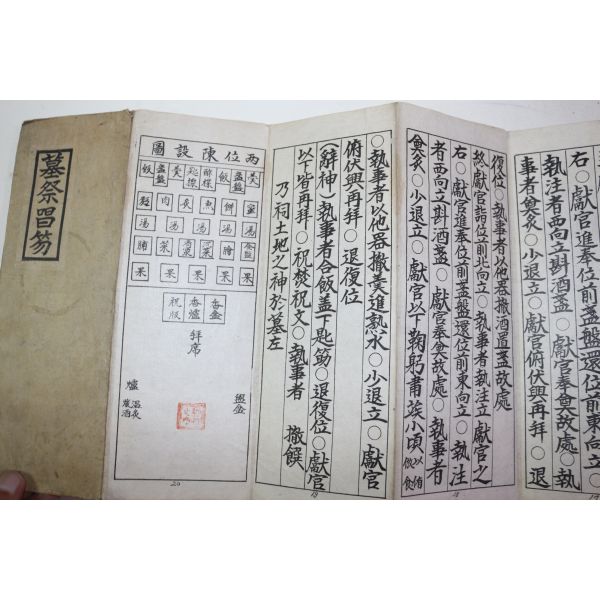 墓祭唱笏
右○獻官進奉位前盞盤還位前東向立
執注者西向立斟酒盞○獻官奉奠故處○執
事者奠炙○少退立○獻官俯伏興再拜○退
復位○執事者以他器撤酒置盞故處
故獻官詣位前北向立○執事者執注立獻官之
右○獻官進奉位前盞盤還位前東向立○執注
者西向立斟酒盞○獻官奉奠故處○執事者
奠炙○少退立○獻官以下鞠躬肅俟小頃
18
○執事者以他器撤羹進熱水○少退立○獻官
俯伏興再拜○退復位
(辭神)○執事者合飯盖下匙筯○退復位○獻官
以皆再拜○祝焚祝文○執事者 撤饌
乃祠土地之神於墓左
19
兩位陳設圖
羹 盞盤 飯 醋楪 匙楪 羹 盞盤 飯
餠 魚 炙 肉 麵
湯 湯 湯 湯
菜 菜 脯
果 果 果 果 果 果
香盒 香爐 祝版
拜席
爐
20